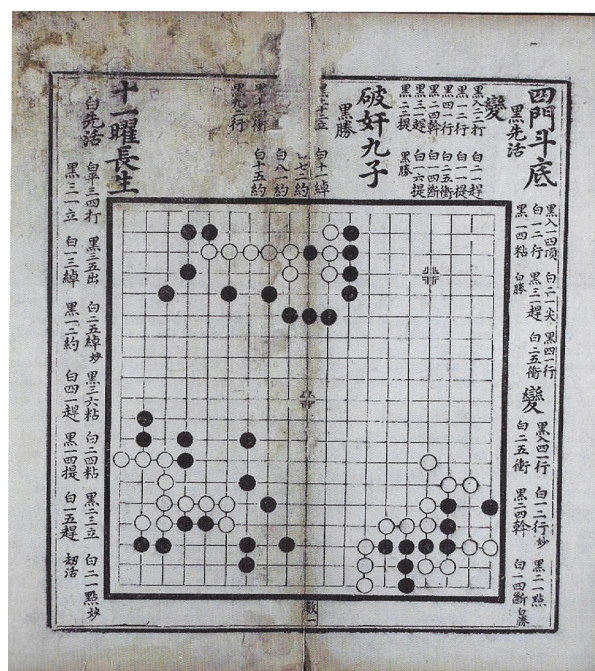 四門斗底
黑先活
黑入一四頂 白二一尖 黑四一行
白一二行 黑三一趕 白二五衝
黑一四粘 白勝
變
黑入四一行 白一二行妙 黑二一點
白二五衝 黑二四幹 白一四斷 白勝
變
黑入二打 白二一趕
黑一二行 白一一提
黑四一行 白二五衝
黑二四幹 白一四斷
黑三一趕 白一六提
黑二二提 黑勝
破奸九子
黑勝
立 白十一綽
七二約
白八一約
衝 白十五約
黑九二行
十一曜長生
白先活
白平三四打 黑三五出 白二五綽妙 黑三六粘 白二四粘 黑二三立 白二一點妙
黑三一立 白一三綽 黑一二約 白四一趕 黑一四提 白一五趕 劫活
數一